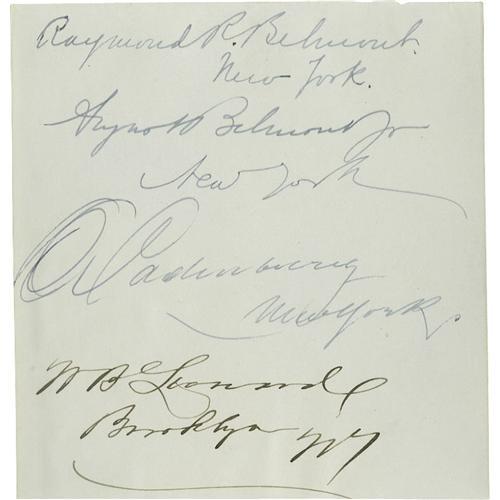 Raymond R. Belmont.
New York.
August Belmont Jr
New York
A Ladenburg
New York.
W B Leonard
Brooklyn NY